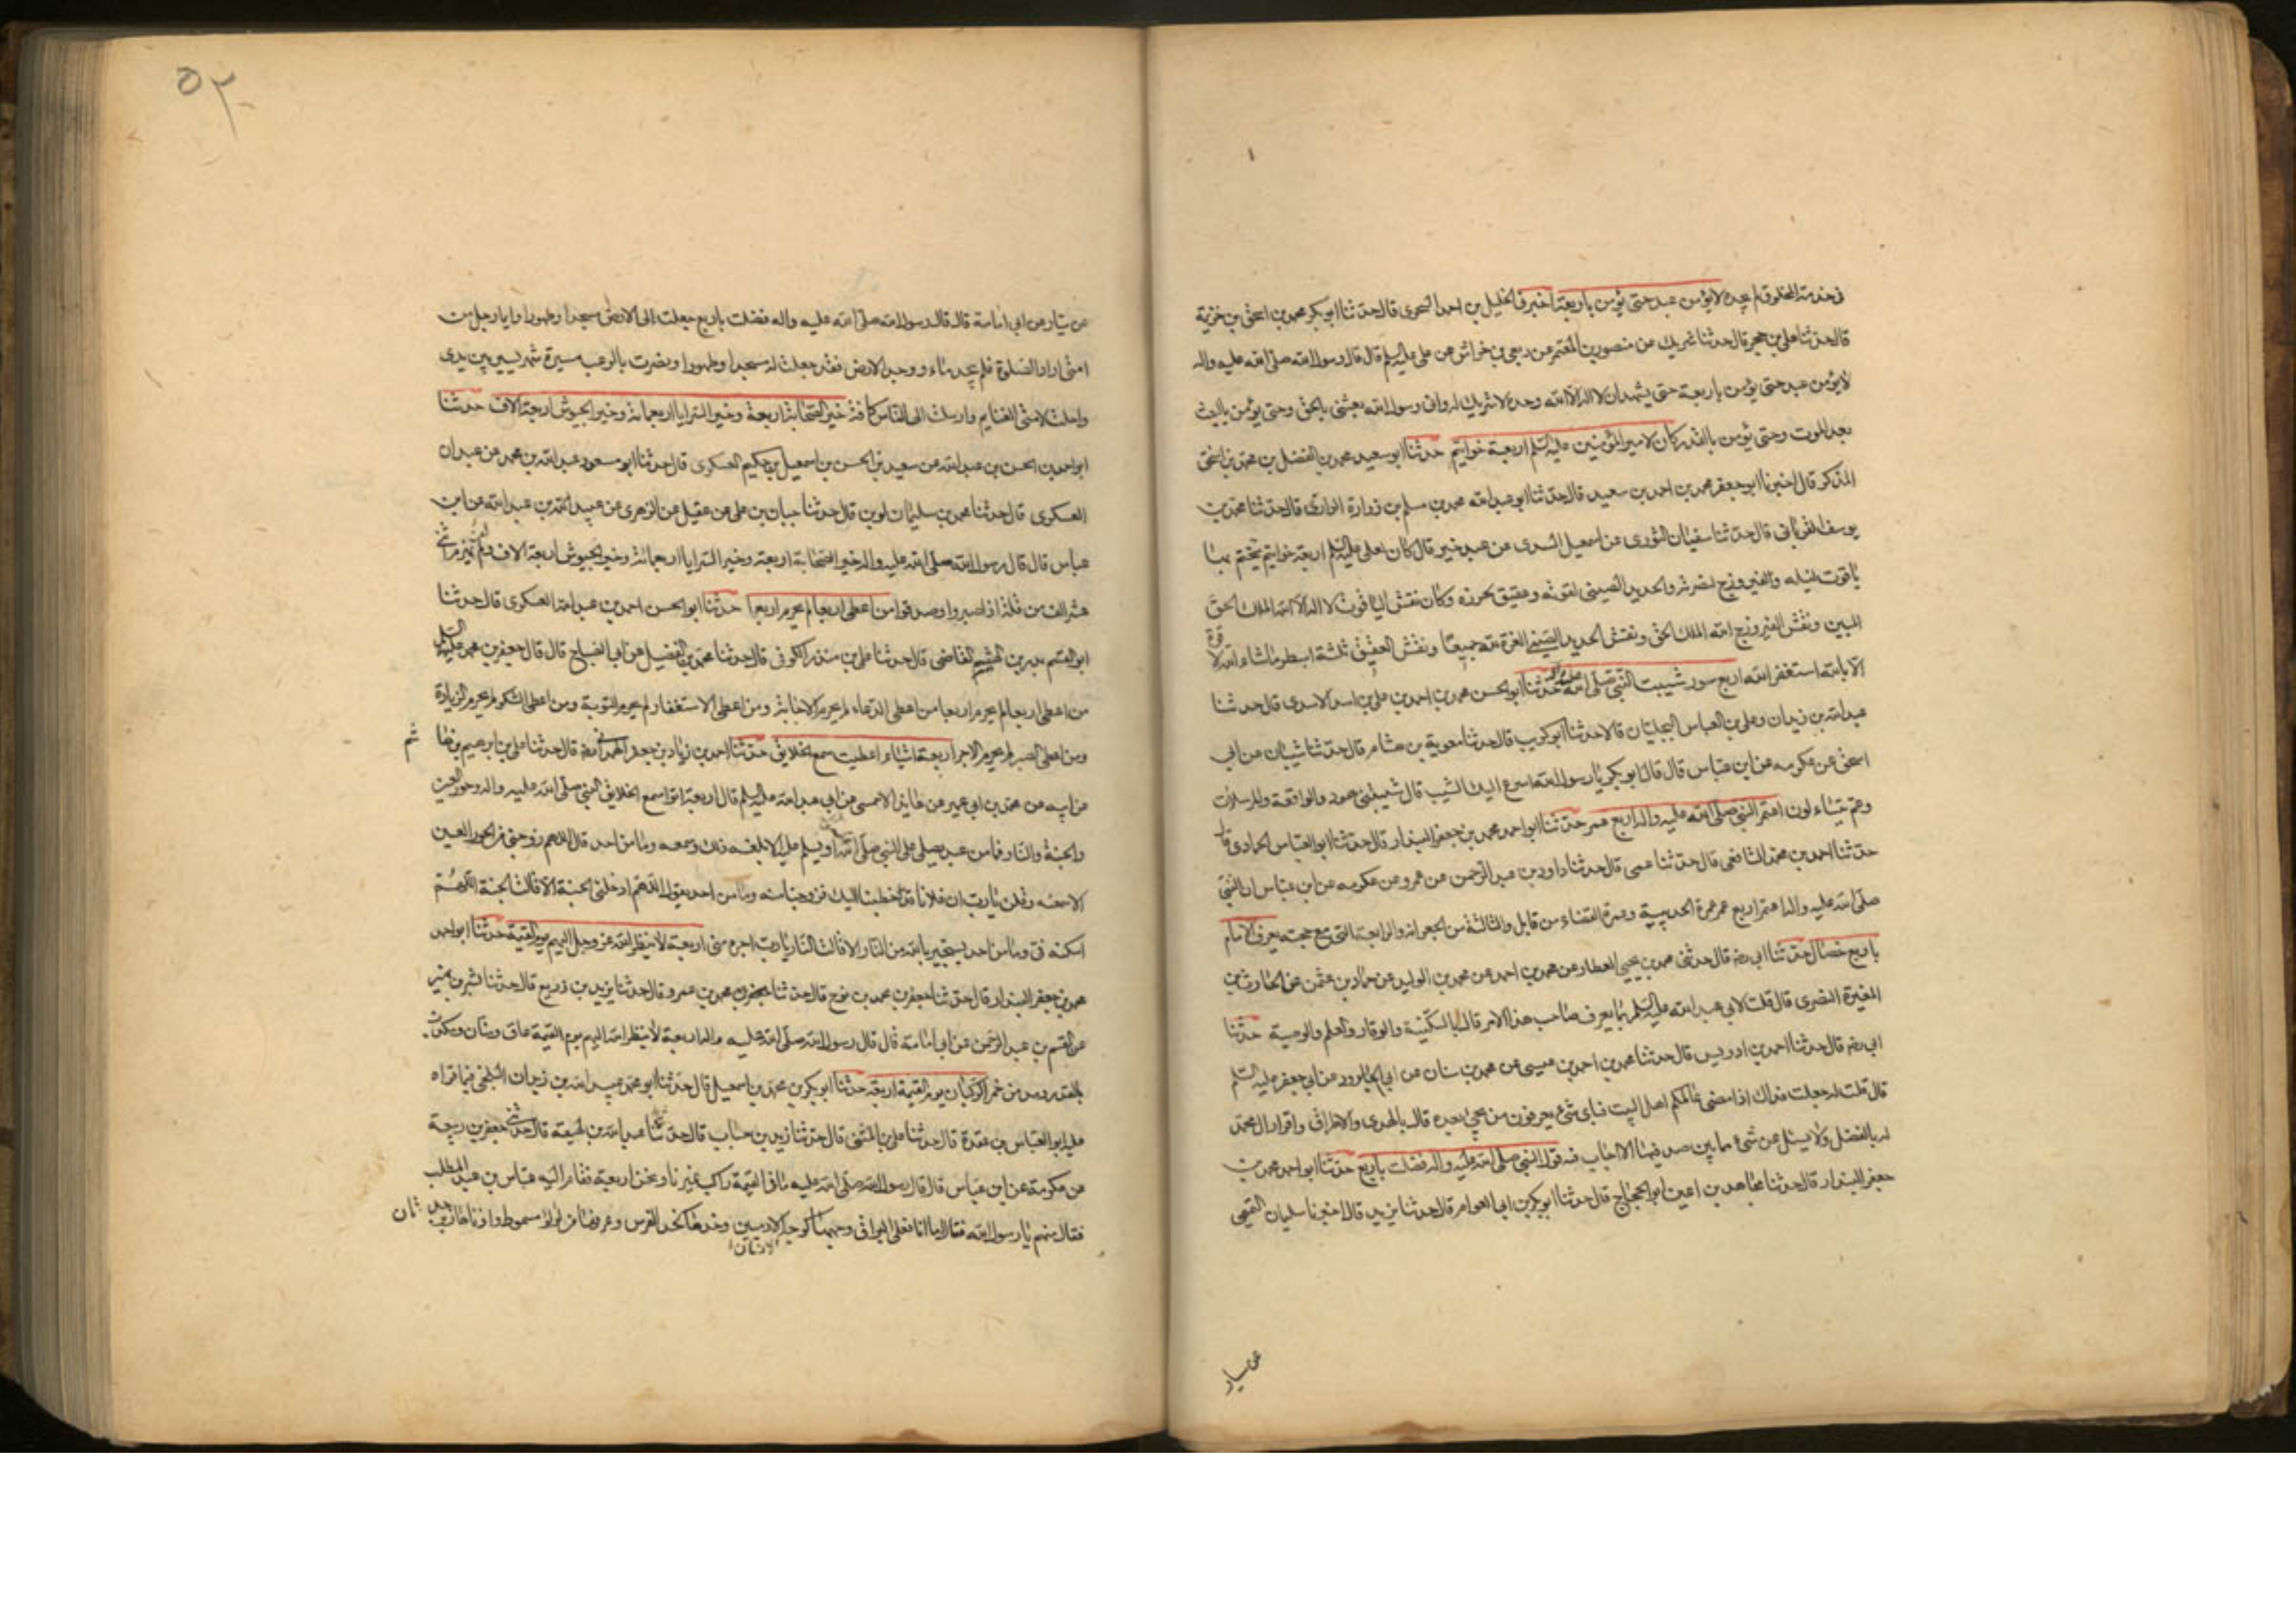 فى خدمة المخلوق لم يجده لا يؤمن عبد حتى يؤمن باربعة اخبرنى الخليل بن احمد السجزى قال حدثنا ابو بكر محمد بن اسحق بن خزيمة
قال حدثنا على بن حجر قال حدثنا شريك عن منصور بن المعتمر عن ربعى بن خراش عن على عليه السلم قال قال رسول الله صلى الله عليه واله
لا يؤمن عبد حتى يؤمن باربعة حتى يشهد ان لا اله الا الله وحده لا شريك له وانى رسول الله بعثنى بالحق وحتى يؤمن بالبعث
بعد الموت وحتى يؤمن بالقدر كان لامير المؤمنين عليه السلم اربعة خواتيم حدثنا ابو سعيد محمد بن الفضل بن محمد بن اسحق
المذكر قال اخبرنا ابو جعفر محمد بن احمد بن سعيد قال حدثنا ابو عبد الله محمد بن مسلم بن زوارة الرازى قال حدثنا محمد بن
يوسف الفريابى قال حدثنا سفيان الثورى عن اسمعيل السدى عن عبد خير قال كان لعلى عليه السلم اربعة خواتيم يتختم بها
ياقوت لنبله والفيروزج لنصرته والحديد الصينى لقوته وعقيق لحرزه وكان نقش الياقوت لا اله الا الله الملك الحق
المبين ونقش الفيروزج الله الملك الحق ونقش الحديد الصينى العزة لله جميعا ونقش العقيق ثلثة اسطر ما شاء الله لا قوة
الا بالله استغفر الله اربع سور شيبت النبى صلى الله عليه واله حدثنا ابو الحسن محمد بن احمد بن على بن اسد الاسدى قال حدثنا
عبد الله بن زيدان وعلى بن العباس البجليان قالا حدثنا ابو كريب قال حدثنا معوية بن هشام قال حدثنا شيبان عن ابى
اسحق عن عكرمه عن ابن عباس قال قال ابو بكر يا رسول الله اسرع اليك الشيب قال شيبتنى هود والواقعة والمرسلات
وعم يتساءلون اعتمر النبى صلى الله عليه واله اربع عمر حدثنا ابو احمد محمد بن جعفر البندار قال حدثنا ابو العباس الحمادى قال
حدثنا احمد بن محمد الشافعى قال حدثنا عمى قال حدثنا داود بن عبد الرحمن عن عمرو عن عكرمه عن ابن عباس ان النبى
صلى الله عليه واله اعتمر اربع عمر عمرة الحديبية وعمرة القضاء من قابل والثالثة من الجعرانه والرابعة التى مع حجته يعرف الامام
باربع خصال حدثنا ابى رضه قال حدثنى محمد بن يحيى العطار عن محمد بن احمد عن محمد بن الوليد عن حماد بن عثمن عن الحارث بن
المغيرة النصرى قال قلت لابى عبد الله عليه السلم بما يعرف صاحب هذا الامر قال بالسكينة والوقار والعلم والوصية حدثنا
ابى رضه قال حدثنا احمد بن ادريس قال حدثنا محمد بن احمد بن عيسى عن محمد بن سنان عن ابى الجارود عن ابى جعفر عليه السلم
قال قلت له جعلت فداك اذا مضى عالمكم اهل البيت فباى شىء يعرفون من يجئ بعده قال بالهدى والاطراق واقرار ال محمد
له بالفضل ولا يسئل عن شىء مما بين صدفيها الا اجاب فيه قول النبى صلى الله عليه واله فضلت باربع حدثنا ابو احمد محمد بن
جعفر البندار قال حدثنا مجاهد بن اعين ابو الحجاج قال حدثنا ابو بكر بن ابى العوام قال حدثنا يزيد قال اخبرنا سليمان التيمى
عن سيار
٥٢
عن سيار عن ابى امامة قال قال رسول الله صلى الله عليه واله فضلت باربع جعلت الى الارض مسجدا وطهورا وايما رجل من
امتى اراد الصلوة فلم يجد ماء ووجد الارض فقد جعلت له مسجدا وطهورا ونصرت بالرعب مسيرة شهر يسير بين يدى
واحلت لامتى الغنايم وارسلت الى الناس كافة خير الصحابة اربعة وخير السرايا اربعمائة وخير الجيوش اربعة الاف حدثنا
ابو احمد بن الحسن بن عبد الله عن سعيد بن الحسن بن اسمعيل بن حكيم العسكرى قال حدثنا ابو مسعود عبد الله بن محمد عن عبدان
العسكرى قال حدثنا محمد بن سليمان لوين قال حدثنا حبان بن على عن عقيل عن الزهرى عن عبيد الله بن عبد الله عن ابن
عباس قال قال رسول الله صلى الله عليه واله خير الصحابة اربعة وخير السرايا اربعمائة وخير الجيوش اربعة الاف ولم يهزم اثنى
عشر الف من قلة اذا صبروا وصدقوا من اعطى اربعا لم يحرم اربعا حدثنا ابو الحسن احمد بن عبد الله العسكرى قال حدثنا
ابو القسم بدر بن الهيثم القاضى قال حدثنا على بن منذر الكوفى قال حدثنا محمد بن الفضيل عن ابى الصباح قال قال جعفر بن محمد عليه السلم
من اعطى اربعا لم يحرم اربعا من اعطى الدعاء لم يحرم الاجابة ومن اعطى الاستغفار لم يحرم التوبة ومن اعطى الشكر لم يحرم الزيادة
ومن اعطى الصبر لم يحرم الاجر اربعة اشياء اعطيت سمع الخلايق حدثنا احمد بن زياد بن جعفر الهمدانى رضه قال حدثنا على بن ابرهيم بن هاشم
عن ابيه عن محمد بن ابى عمير عن عايذ الاحمسى عن ابى عبد الله عليه السلم قال اربعة اتوا سمع الخلايق النبى صلى الله عليه واله وحور العين
والجنة والنار فما من عبد يصلى على النبى صلى الله عليه واله ويسلم عليه الا بلغه ذلك وسمعه وما من احد قال اللهم زوجنى من الحور العين
الا سمعنه وقلن يا رب ان فلانا قد خطبنا اليك فزوجنا منه وما من احد يقول اللهم ادخلنى الجنة الا قالت الجنة اللهم
اسكنه فى وما من احد يستجير بالله من النار الا قالت النار يا رب اجره منى اربعة لا ينظر الله عز وجل اليهم يوم القيمة حدثنا ابو احمد
محمد بن جعفر البندار قال حدثنا جعفر بن محمد بن نوح قال حدثنا محمد بن عمرو قال حدثنا يزيد بن زريع قال حدثنا بشر بن نمير
عن القسم بن عبد الرحمن عن ابى امامة قال قال رسول الله صلى الله عليه واله اربعة لا ينظر الله اليهم يوم القيمة عاق ومنان ومكذب
بالقدر ومدمن خمر الركبان يوم القيمة اربعة حدثنا ابو بكر بن محمد بن اسمعيل قال حدثنا ابو محمد عبد الله بن زيدان البلخى فيما قراه
عليه ابو العباس بن عقدة قال حدثنا على بن المثنى قال حدثنا زيد بن حباب قال حدثنا عبد الله بن لهيعة قال حدثنى جعفر بن ربيعة
عن عكرمة عن ابن عباس قال قال رسول الله صلى الله عليه ما فى القيمة راكب غيرنا ونحن اربعة فقام اليه عباس بن عبد المطلب
فقال من هم يا رسول الله فقال اما انا فعلى البراق وجهها كوجه الادميين وخدها كخد الفرس وعرفها من لؤلؤ مسموط واذناها زبرجدتان